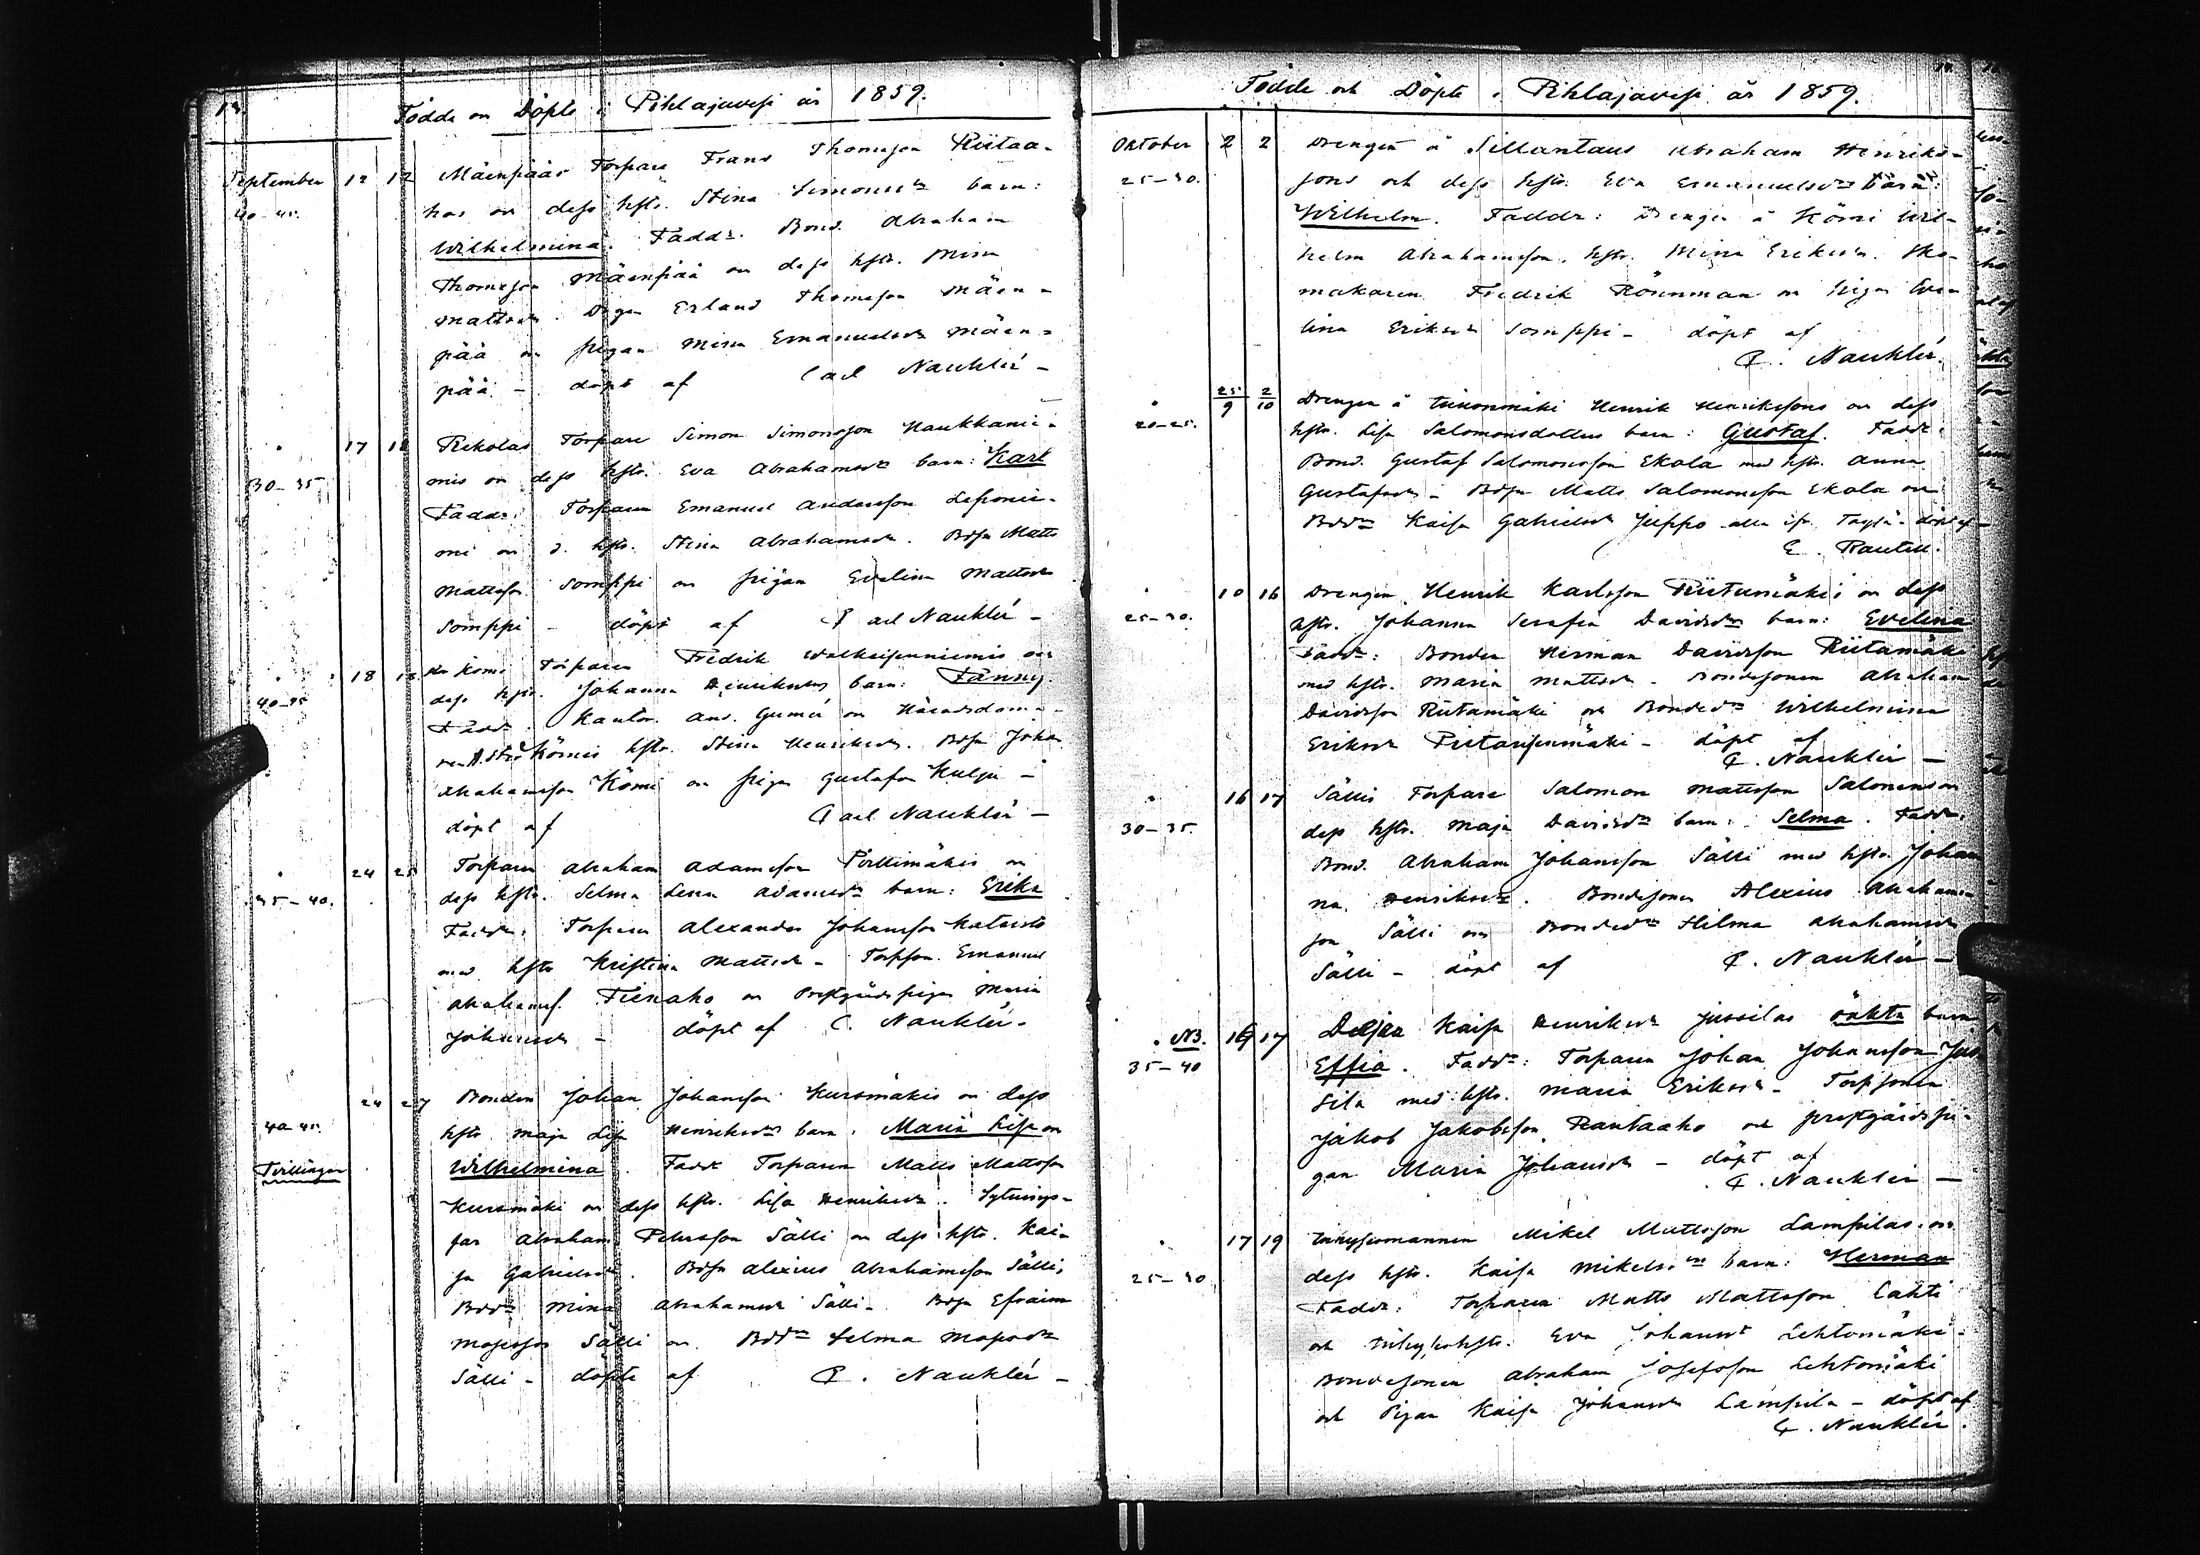 14.
Födde och Döpte i Pihlajavesi år 1859.
September 12 12 Mäenpääs Torpare Frans Thomasson Riitaa-
40-45. hos och dess hstr. Stina Simonsdr barn:
Wilhelmina. Faddr. Bond. Abraham
Thomasson Mäenpää och dess hstr. Mina
Mattsdr. Drgn Erland Thomasson Mäen-
pää och pigan Mina Emanuelsdr Mäen-
pää - döpt af Carl Nauklér -
17 18 Torpare Simon Simonsson Haukkanie-
30-35 mis och dess hstr. Eva Abrahamsdr barn: Karl
Faddr: Torparen Emanuel Andersson Leponie-
mi och d. hstr. Stina Abrahamsdr. Bdsn Matts
Mattsson Somppi och pigan Evelina Mattsdr
Somppi - döpt af Carl Nauklér -
18 18 Torparen Fredrik och
dess hstr. Johanna Henriksdrs barn: Fanny.
Faddr. Kantor. And. Gumér och
Kömis hstr. Stina Henriksdr. Bdsn Johan
Abrahamsson Kömi och pigan Gustafva Kulju -
döpt af Carl Nauklér -
24 25 Torparen Abraham Adamsson Pirttimäkis och
35-40. dess hstr. Selma Lena Adamsdr barn: Erika
Faddr: Torparen Alexander Johansson
med hstr Kristina Mattsdr - Torpson. Emanuel
Abrahamss. Tienaho och Prestgårds pigan Maria
Johansdr - döpt af C. Nauklér.
24 27 Bonden Johan Johansson Kuresmäkis och dess
40-45. hstr Maja Lisa Henriksdrs barn: Maria Lisa och
Tvillingar Wilhelmina. Faddr Torparen Matts Mattsson
Kuresmäki och dess hstr. Lisa Henriksdr. Sytnings-
far Abraham Petersson Sälli och dess hstr. Kai-
sa Gabrielsdr. Bdsn Alexius Abrahamsson Sälli,
Bddr Mina Abrahamsdr Sälli - Bdsn Efraim
Mosesson Sälli och Bddr Selma Mosesdr
Sälli - döpte af C. Nauklér -
Födde och Döpte i Pihlajavesi år 1859.
Oktober 2 2 Drengen å Sillantaus Abraham Henriks-
25-30. sons och dess hstr. Eva Emanuelsdrs barn:
Wilhelm. Faddr: Drengen å Kömi Wil-
helm Abrahamsson, hstr. Mina Eriksdr. Sko-
makaren Fredrik Rönnman och pigan Eve-
lina Eriksdr Somppi - döpt af
C. Nauklér.
25/9 2/10 Drengen å Henrik Henrikssons och dess
20-25. hstr. Lisa Salomonsdotters barn: Gustaf. Faddr:
Bond. Gustaf Salomonsson Ekola med hstr. Anna
Gustafsdr - Bdsn Matts Salomonsson Ekola och
Bddr Kaisa Gabrielsdr Juppo alla ifr. Töysä - döpt af
E. Rautell.
10 16 Drengen Henrik Karlsson Riitamäkis och dess
25-30. hstr. Johanna Serafia Davidsdrs barn: Evelina
Faddr: Bonden Herman Davidsson Riitamäki
med hstr. Maria Mattsdr - Bondesonen Abraham
Davidsson Riitamäki och Bondedr Wilhelmina
Eriksdr - döpt af
C. Nauklér -
16 17 Sällis Torpare Salomon Mattsson Salonens och
30-35. dess hstr. Maja Davidsdrs barn: Selma. Faddr:
Bond. Abraham Johansson Sälli med hstr. Johan
na Henriksdr. Bondesonen Alexius Abrahams-
son Sälli och Bondedr Hilma Abrahamsdr
Sälli - döpt af C. Nauklér -
NB. 16 17 Dejan Kaisa Henriksdr Jussilas oäkta barn
35-40 Effia. Faddr: Torparen Johan Johansson Jus
sila med hstr. Maria Eriksdr - Torpsonen
Jakob Jakobsson Rantaaho och prestgårds pi-
gan Maria Johansdr - döpt af
C. Nauklér -
17 19 Inhysesmannen Mikel Mattsson Lampilas och
25-30 dess hstr. Kaisa Mikelsdrs barn: Herman
Faddr: Torparen Matts Mattsson Lahti
och Inhyseshstr. Eva Johansdr Lehtomäki -
Bondesonen Abraham Josefsson Lehtomäki
och Pigan Kaisa Johansdr Lampila - döpt af
C. Nauklér.